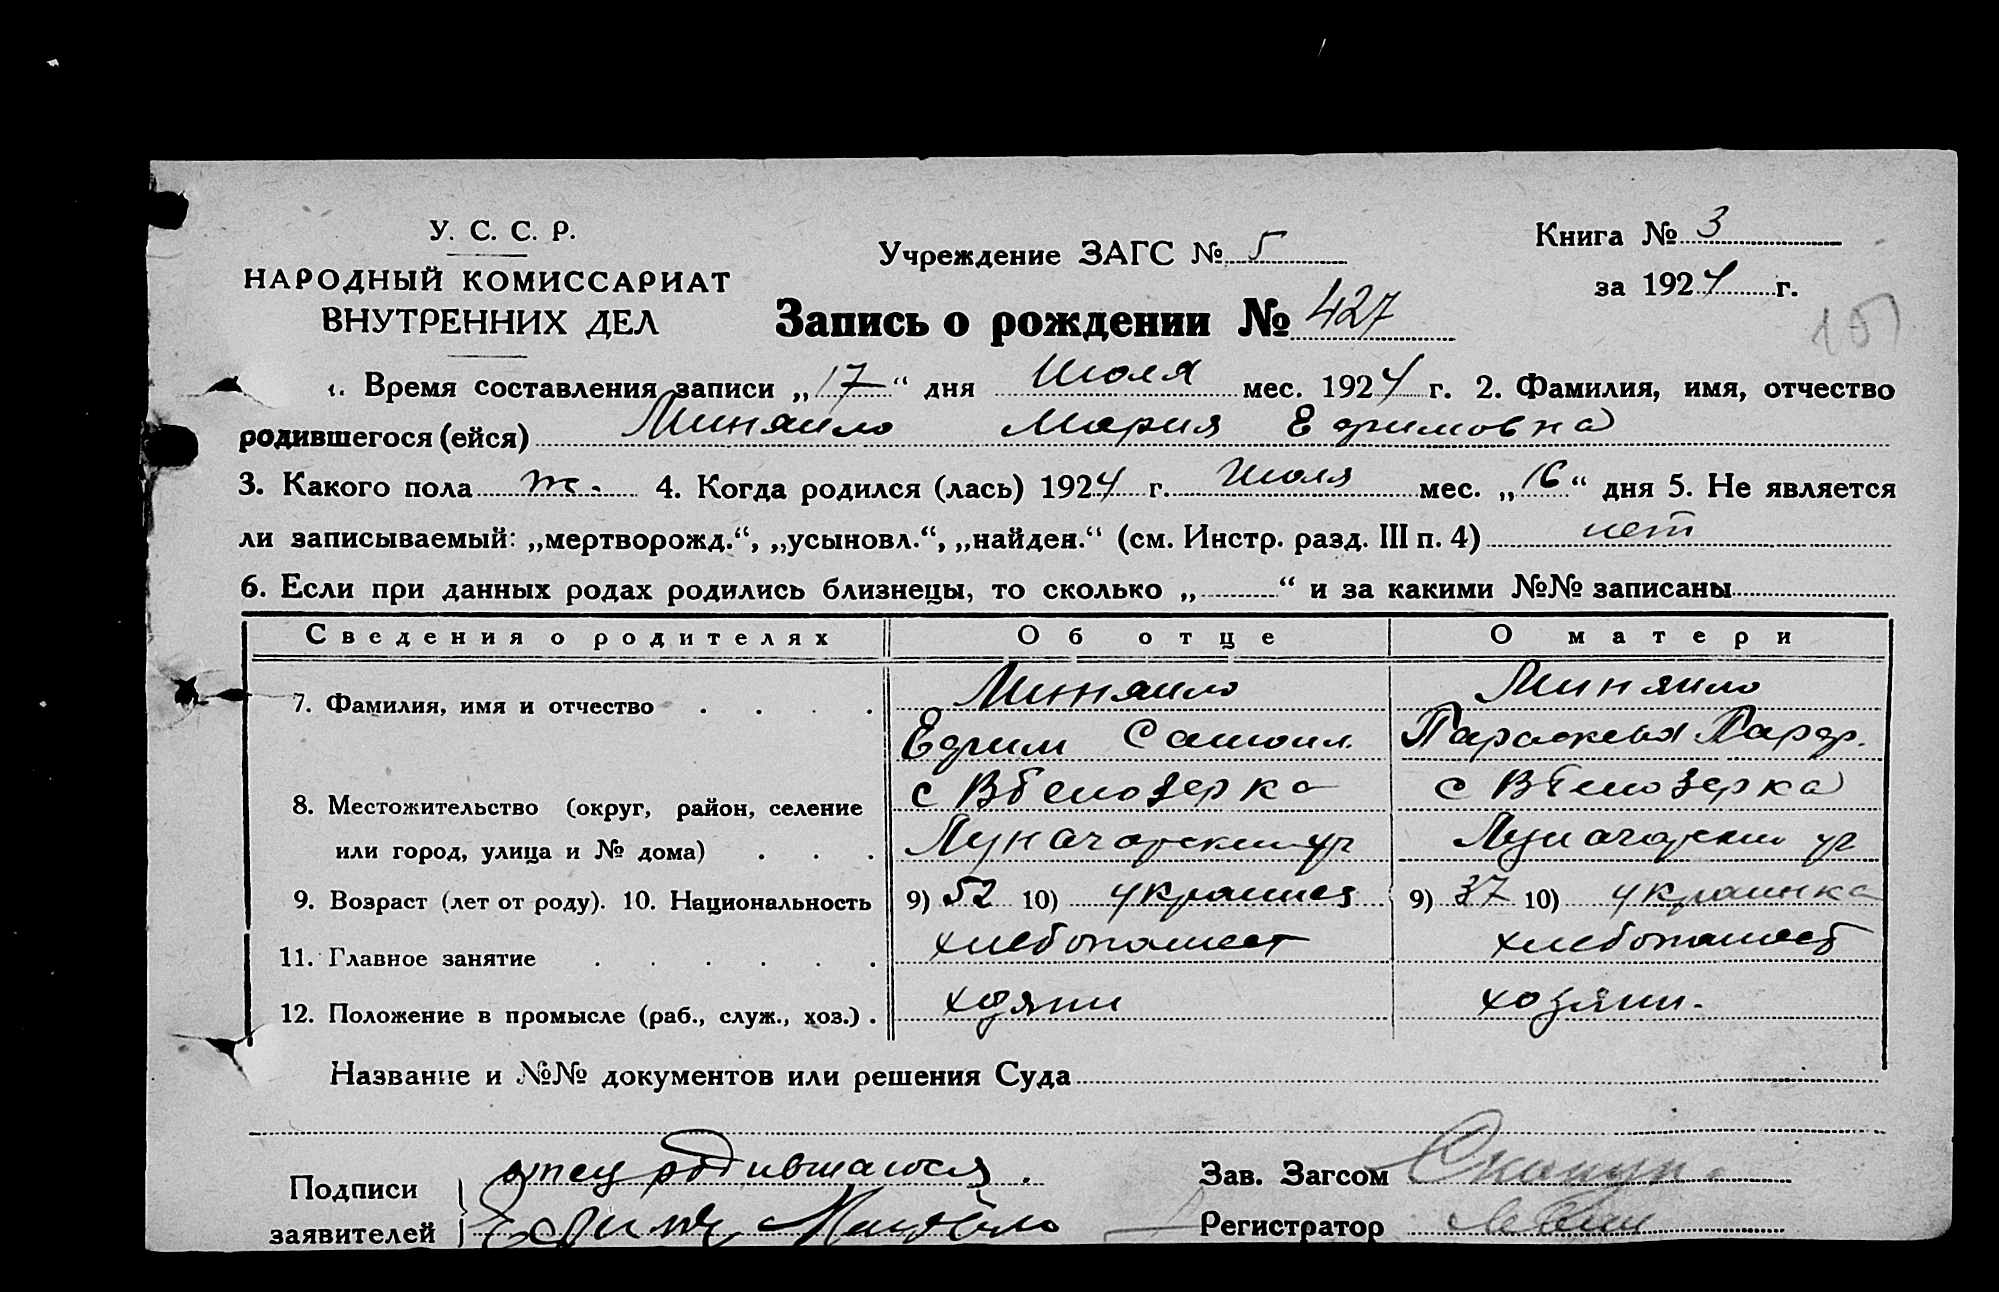 У. С. С. Р.
НАРОДНЫЙ КОМИССАРИАТ
ВНУТРЕННИХ ДЕЛ
Учреждение ЗАГС № 5
Книга № 3
за 1924 г.
Запись о рождении № 427
1. Время составления записи „17“ дня Июля мес. 1924 г. 2. Фамилия, имя, отчество
родившегося (ейся) Миняило Мария Ефимовна
3. Какого пола ж. 4. Когда родился (лась) 1924 г. Июля мес. „16“ дня 5. Не является
ли записываемый: „мертворожд.“, „усыновл.“, „найден.“ (см. Инстр. разд. III п. 4) нет
6. Если при данных родах родились близнецы, то сколько „ “ и за какими №№ записаны
Сведения о родителях Об отце О матери
7. Фамилия, имя и отчество Миняило Миняило
Ефим Самоил. Параскева Парф.
8. Местожительство (округ, район, селение с Вбелозерка с Вбелозерка
или город, улица и № дома) Луначарский ур Луначарский ур
9. Возраст (лет от роду). 10. Национальность 9) 52 10) украинец 9) 37 10) украинка
11. Главное занятие хлебопашест хлебопашест
12. Положение в промысле (раб., служ., хоз.) хозяин хозяин.
Название и №№ документов или решения Суда
Подписи отец родившагося.
заявителей Ефим
Зав. Загсом
Регистратор